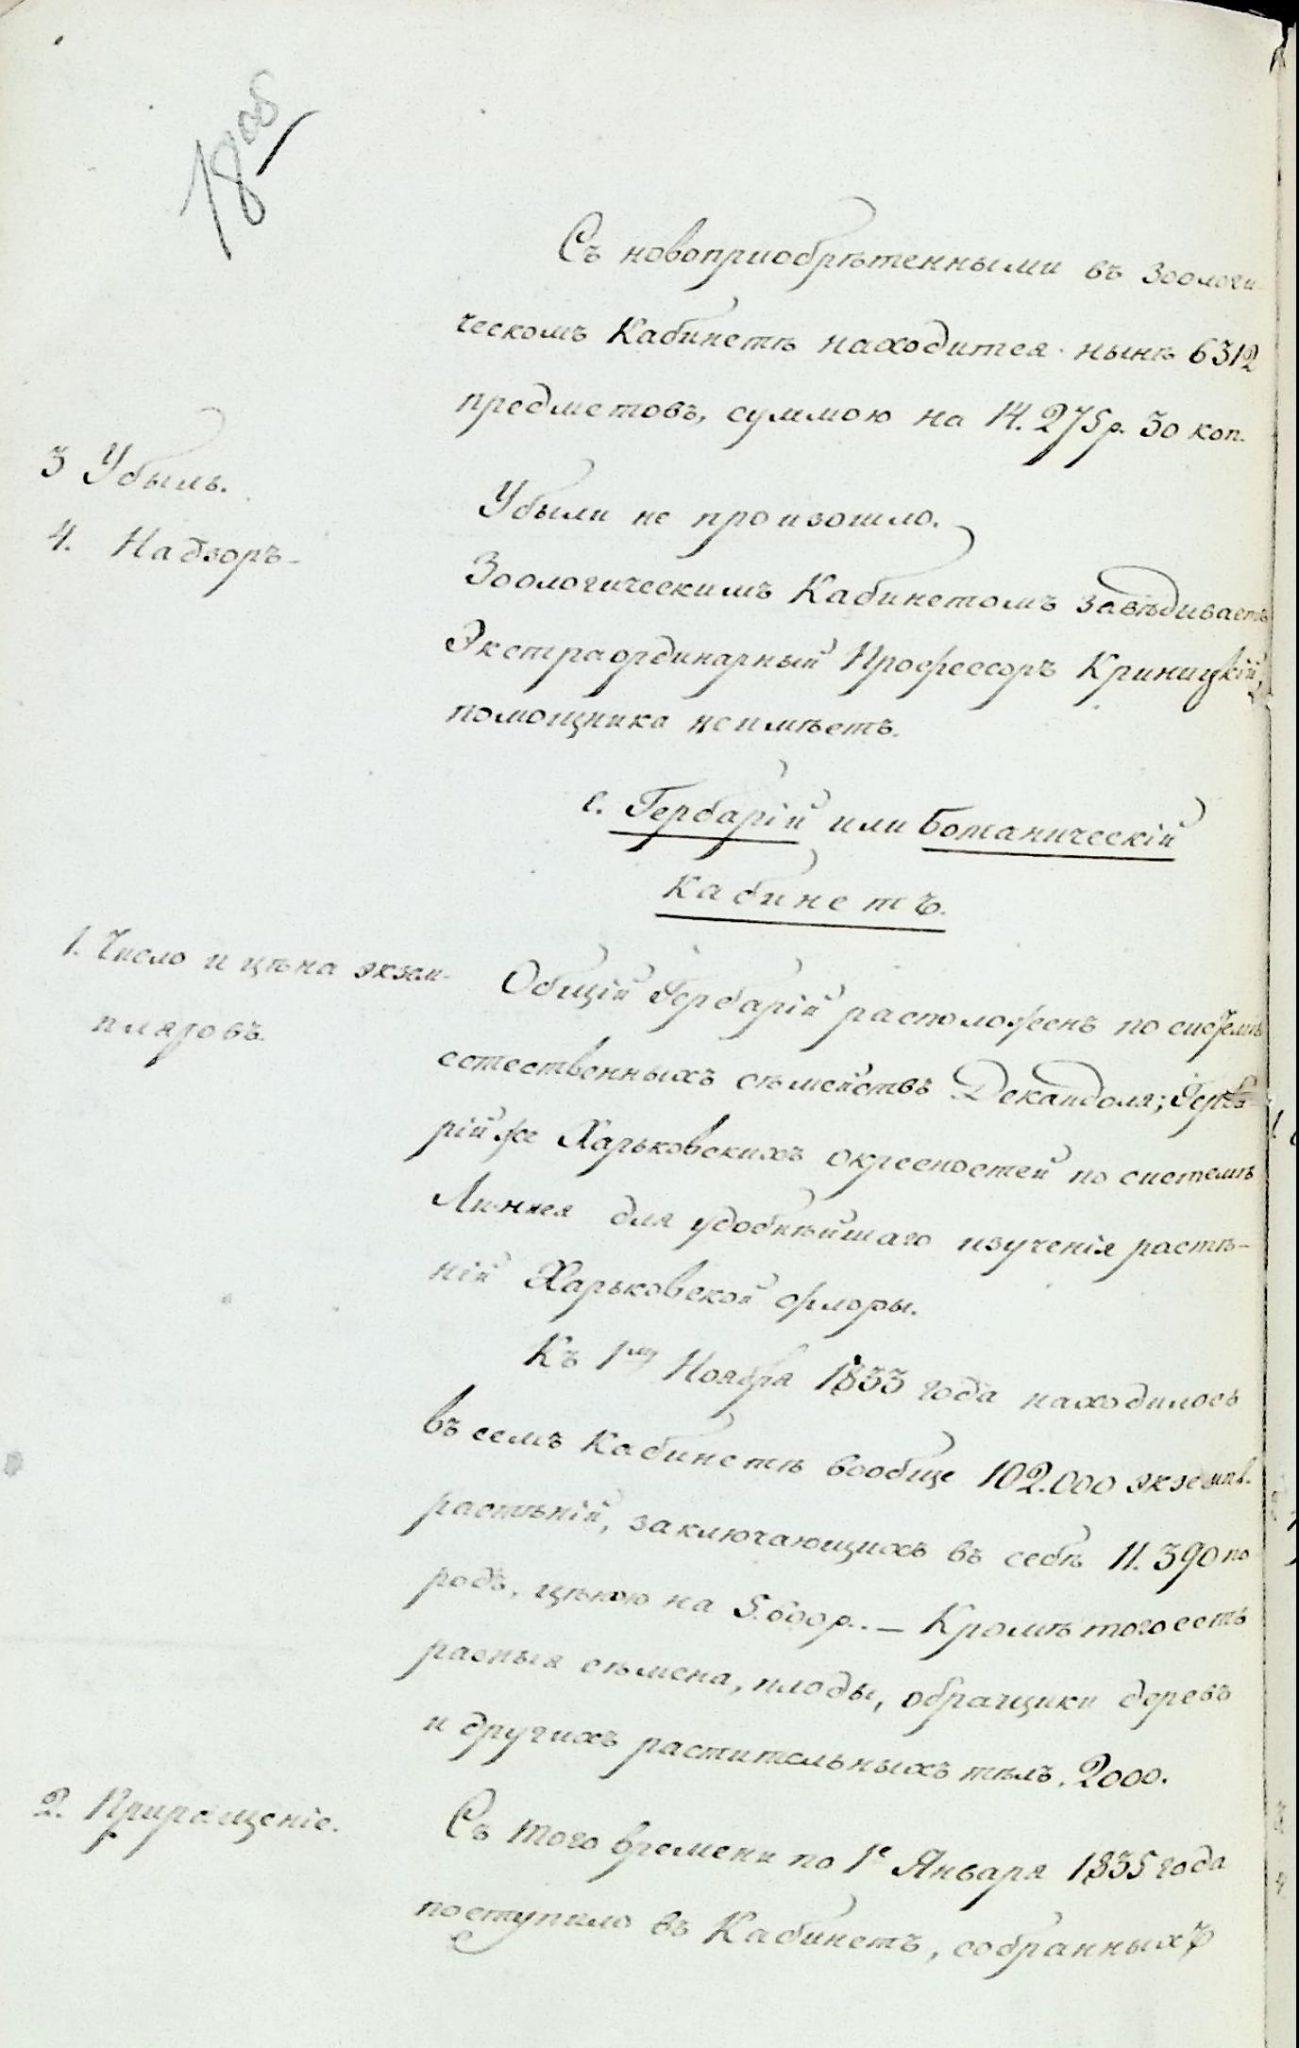 18об
Съ новопріобрѣтенными въ Зоологи-
ческомъ Кабинетѣ находится нынѣ 6312
предметовъ, суммою на 14.275 р. 30 коп.
3 Убыль.
Убыли не произошло.
4. Надзоръ-
Зоологическимъ Кабинетомъ завѣдываетъ
Экстраординарный Профессоръ Криницкій,
помощника неимѣетъ.
с. Гербарій или Ботаническій
Кабинетъ.
1. Число и цѣна экзем-
пляровъ.
Общій Гербарій расположенъ по системѣ
естественныхъ сѣмействъ Декандоля; Герба-
рій же Харьковскихъ окресностей по системѣ
Линнея для удобнѣйшаго изученія растѣ-
ній Харьковской флоры.
Къ 1му Ноября 1833 года находилось
въ семъ Кабинетѣ вообще 102.000 экземпл.
растѣній, заключающихъ въ себѣ 11.390 по
родъ, цѣною на 5.600 р.. — Кромѣ того есть
разныя сѣмена, плоды, обращики деревъ
и другихъ растительныхъ тѣлъ. 2000.
2. Приращеніе.
Съ того времени по 1е Января 1835 года
поступило въ Кабинетъ, собранныхъ